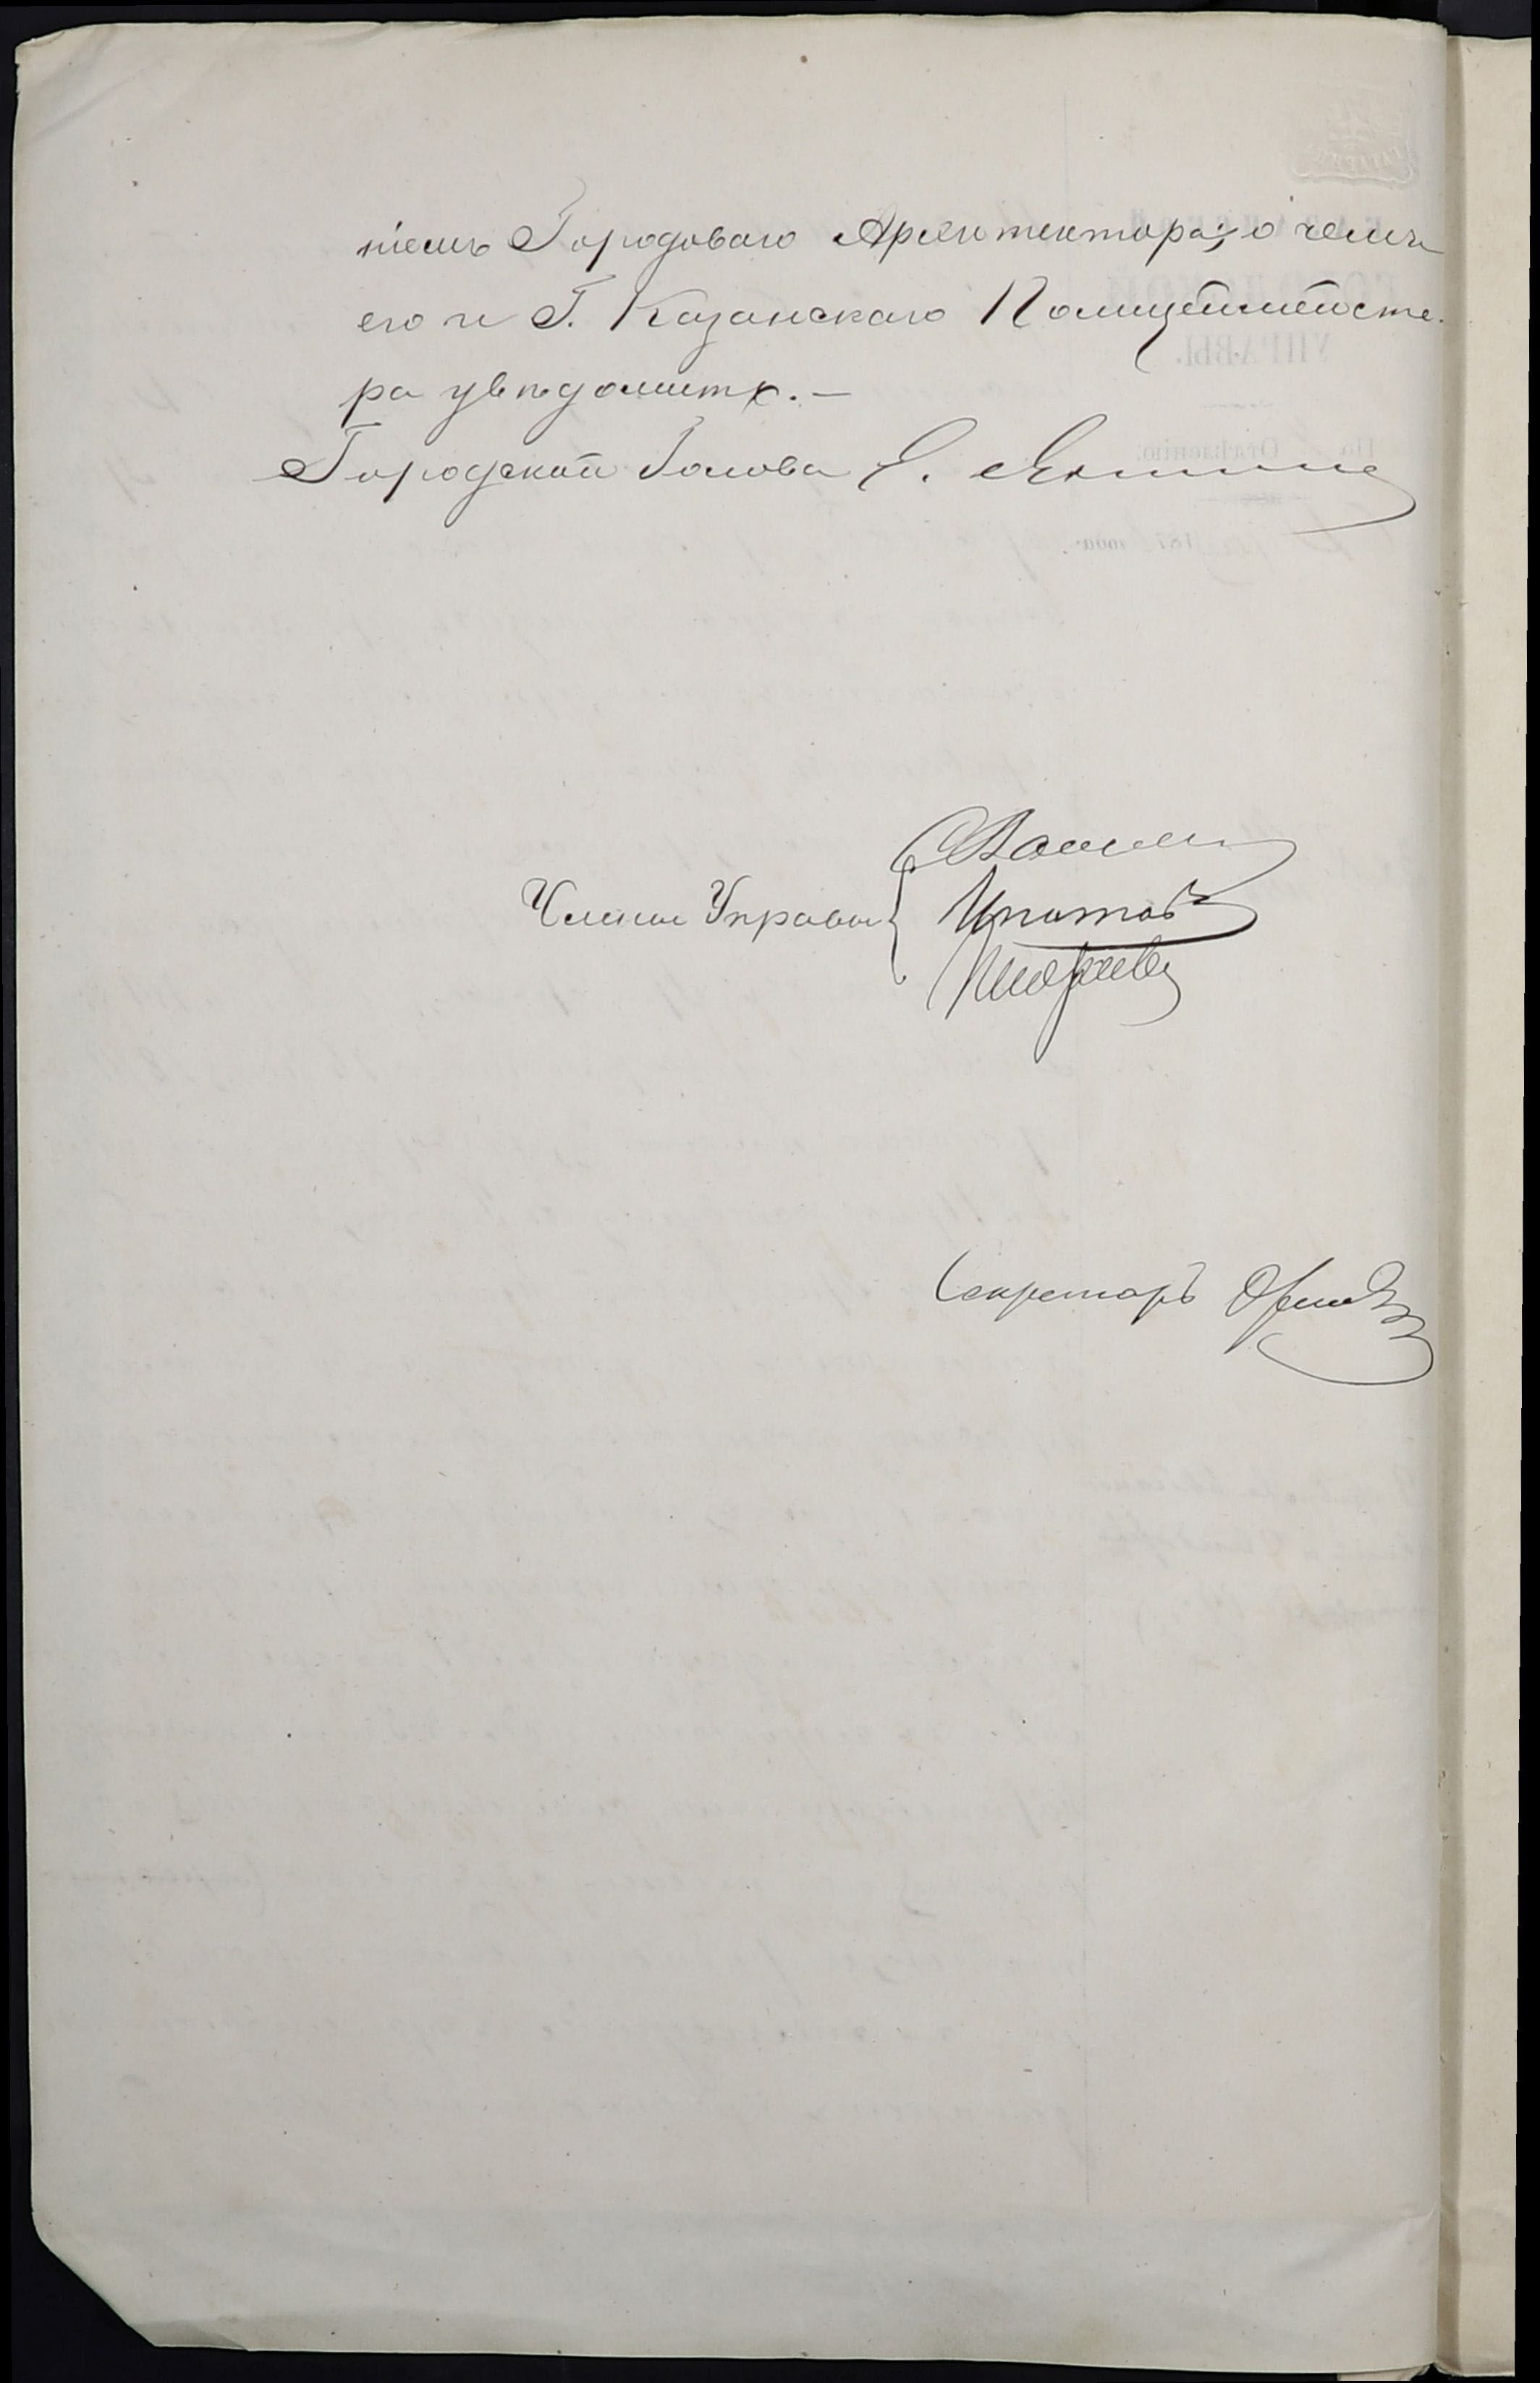 ніемъ Городоваго Архитектора; о чемъ
его и Г. Казанскаго Полицеймейсте-
ра увѣдомить. —
Городской Голова Е.
Члены Управы
Ипатовъ
Секретарь